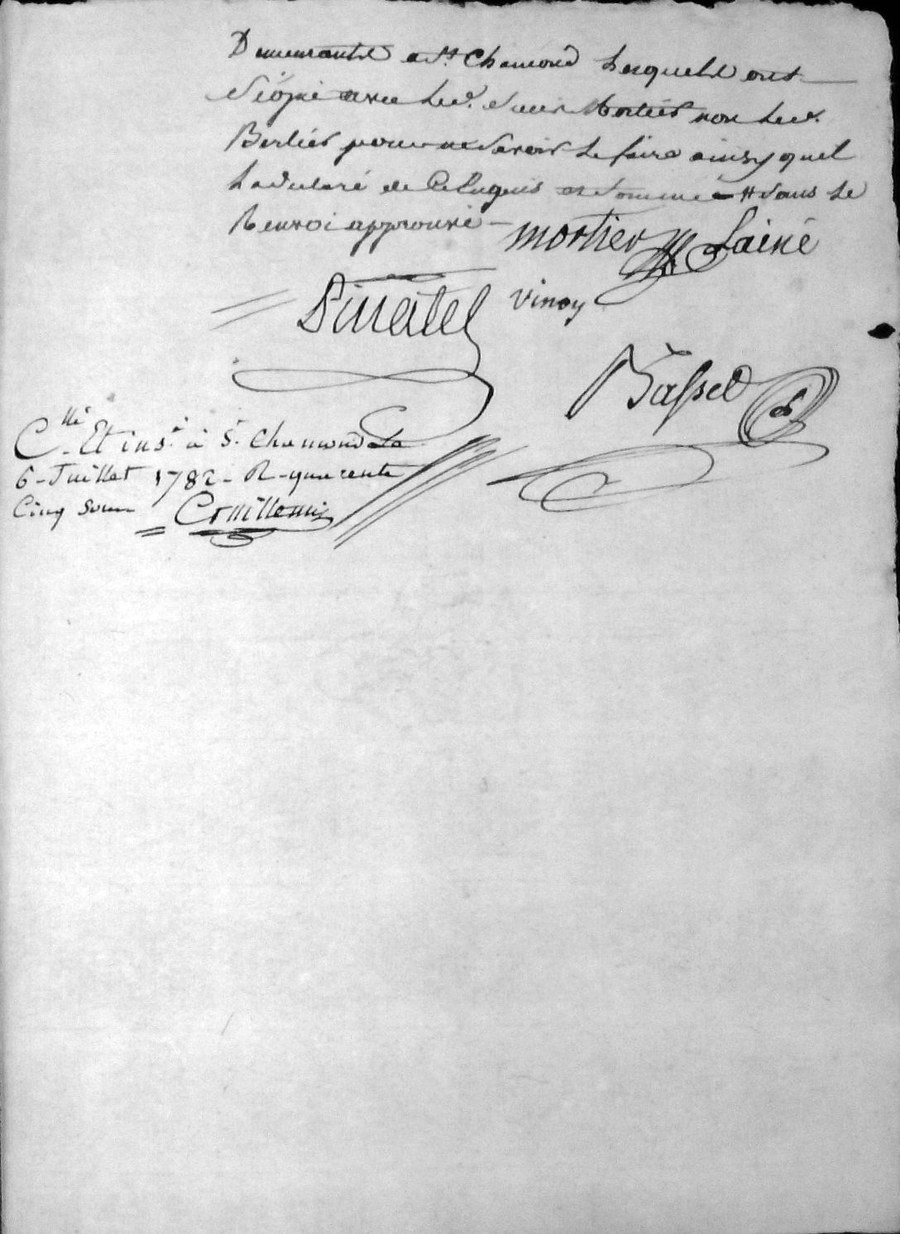 Demeurants a St. Chamond Lesquels ont
Signé avec led. Sieur Mortier non led.
Berlier pour ne Savoir Le faire ainsy quil
La declaré de Ce enquis et Sommé // Sous Le
Renvoi approuvé —
mortier Lainé
Pinatel
Vinoy
Basset
C.llé Et ins.é à St. Chamond Le
6 - Juillet 1782 - R - quarente
Cinq Sous